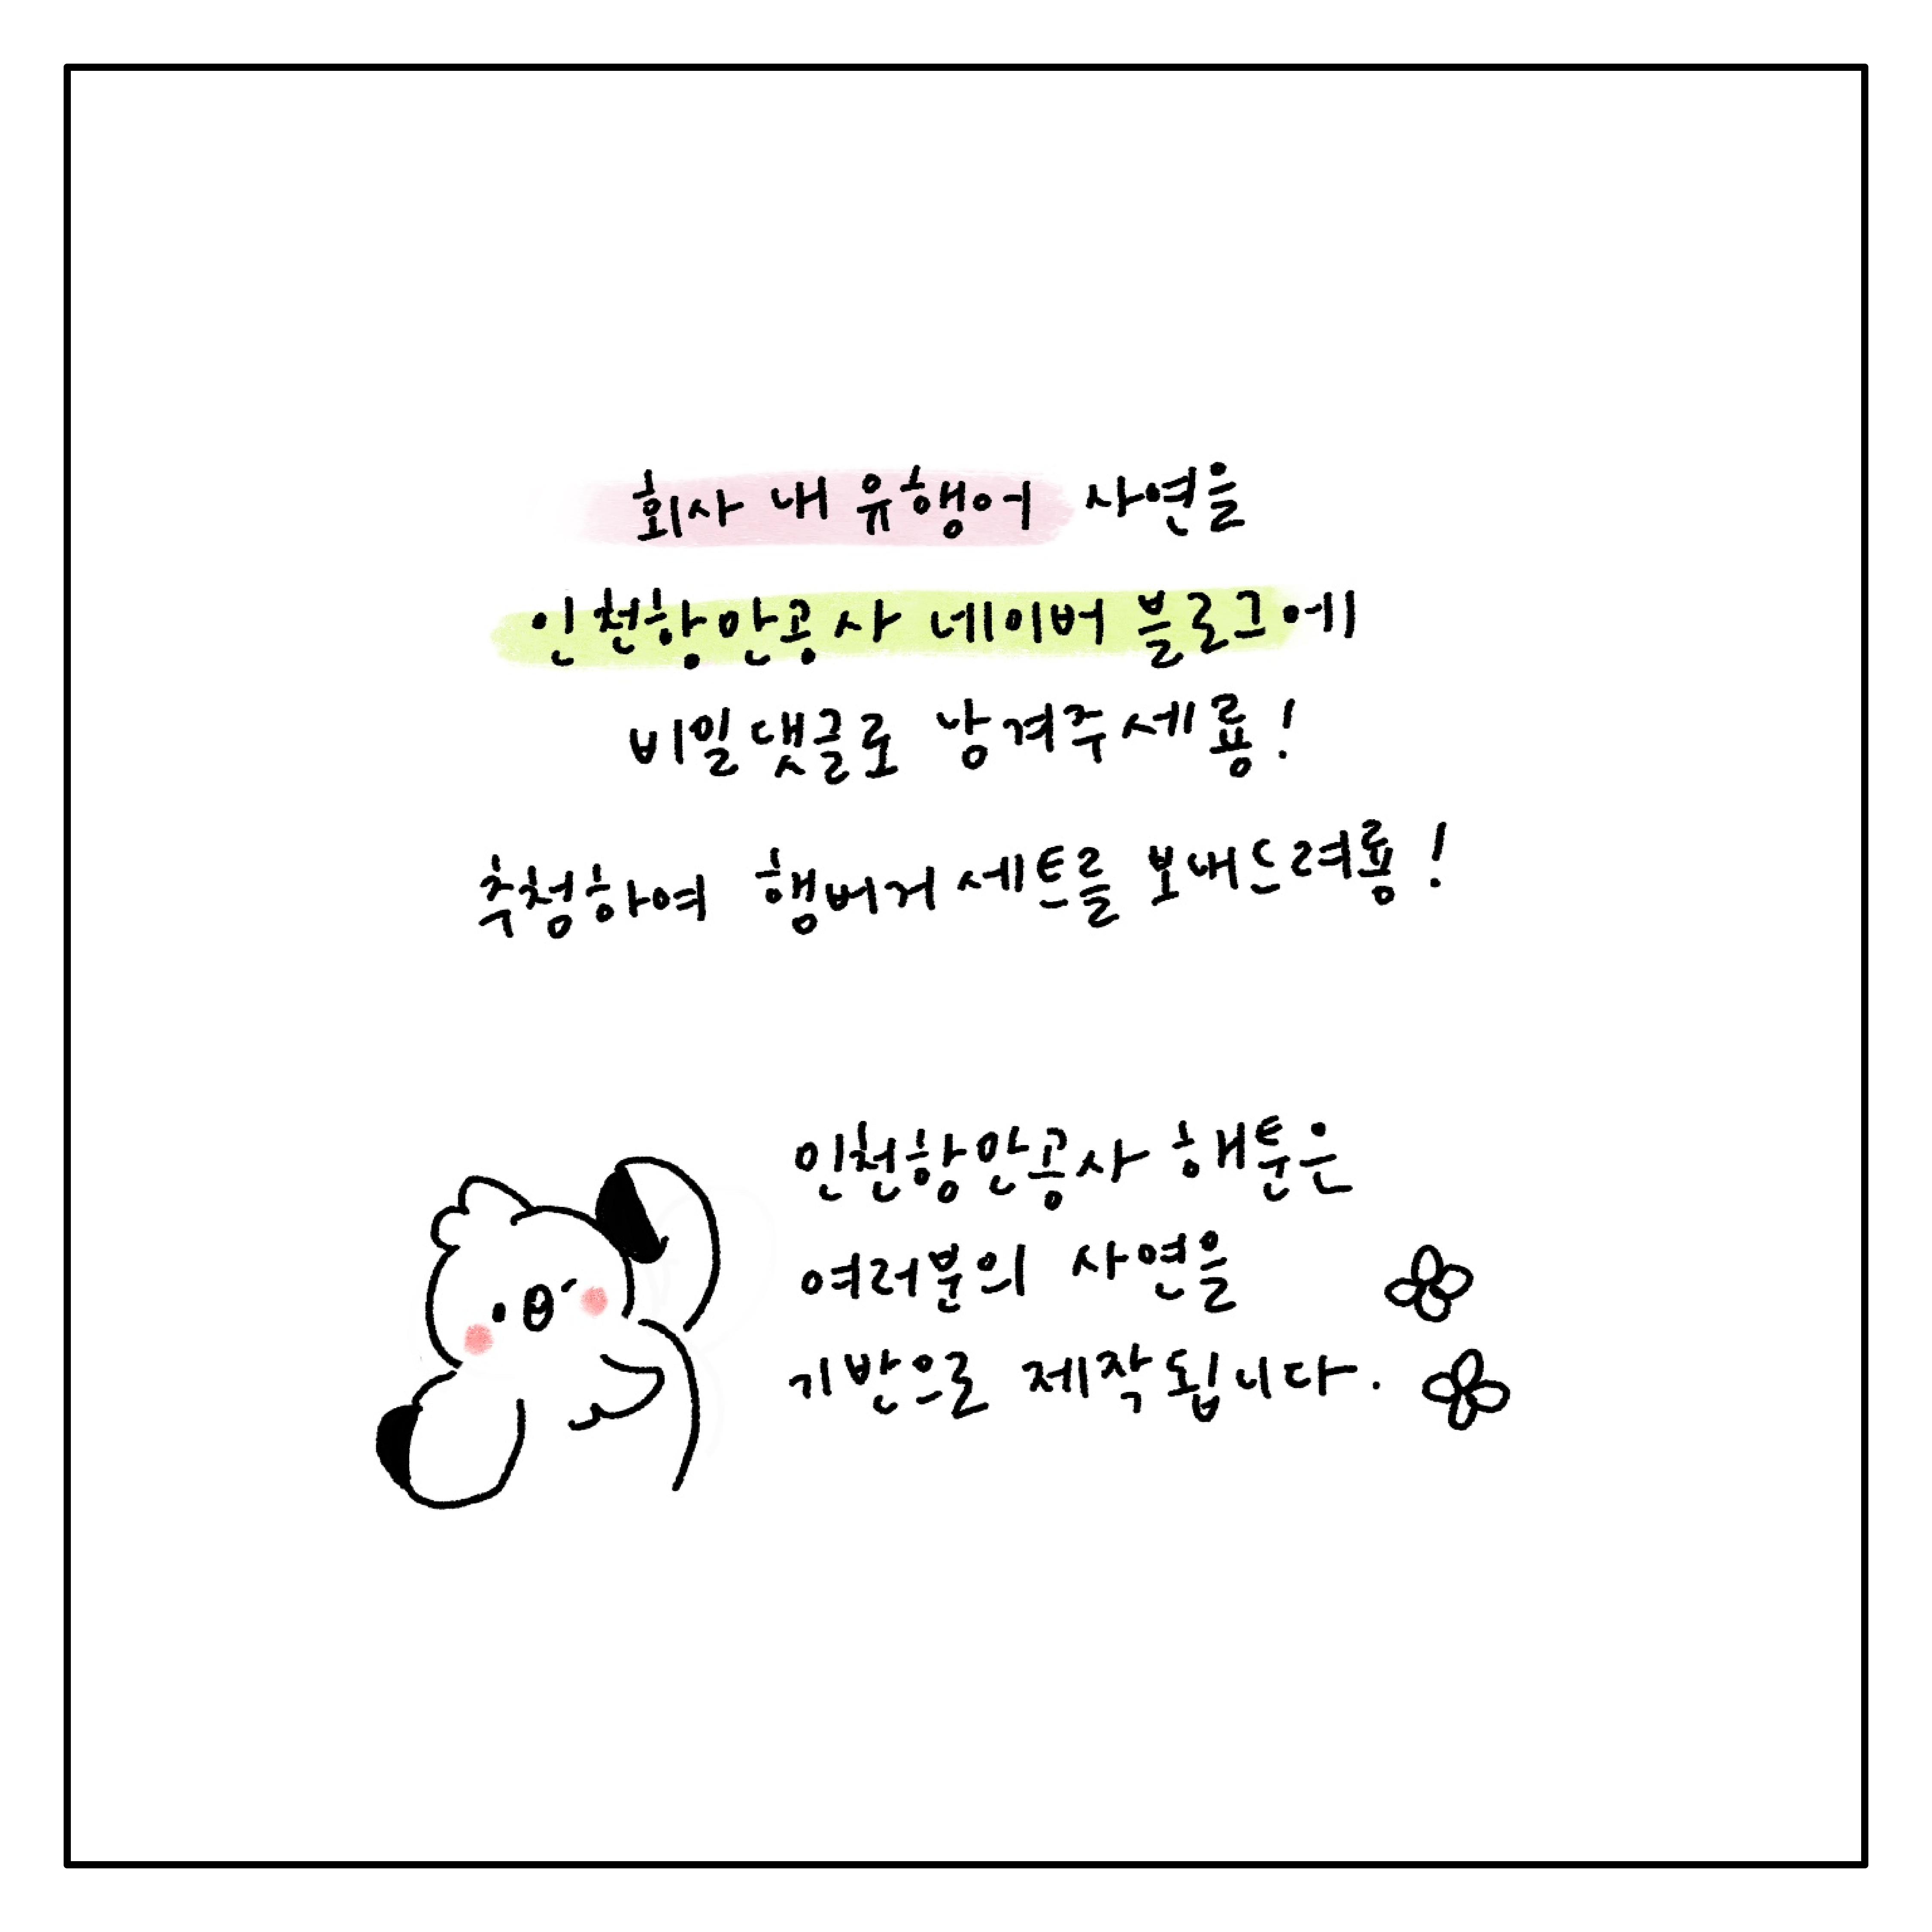 회사 내 유행어 사연을
인천항만공사 네이버 블로그에
비밀댓글로 남겨주세룡!
추첨하여 햄버거세트를 보내드려룡!
인천항만공사 해툰은
여러분의 사연을
기반으로 제작됩니다.